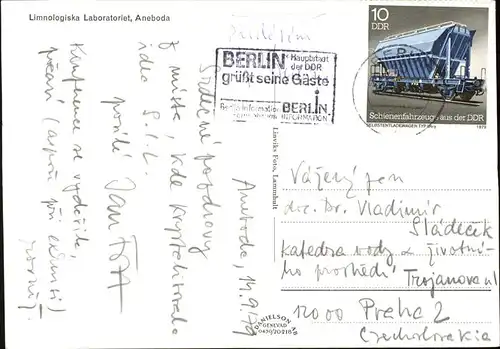 Limnologiska Laboratoriet, Aneboda
BERLIN Hauptstadt
der DDR
grüßt seine Gäste
Berlin-Information BERLIN
INFORMATION
10
DDR
Schienenfahrzeuge aus der DDR
1979
Linviks Foto, Lammhult
DANIELSON AB
GENEVAD
Aneboda, 14.9.79
Srdečné pozdravy
z místa, kde krystalizovala
idea S.I.L.
posílá Jan
Konference se vydařila,
počasí (aspoň při exkursi)
rovněž.
Vážený pan
doc. Dr. Vladimír
Sládeček
Katedra vody a životní-
ho prostředí Trojanova ul
12000 Praha 2
Czechoslovakia